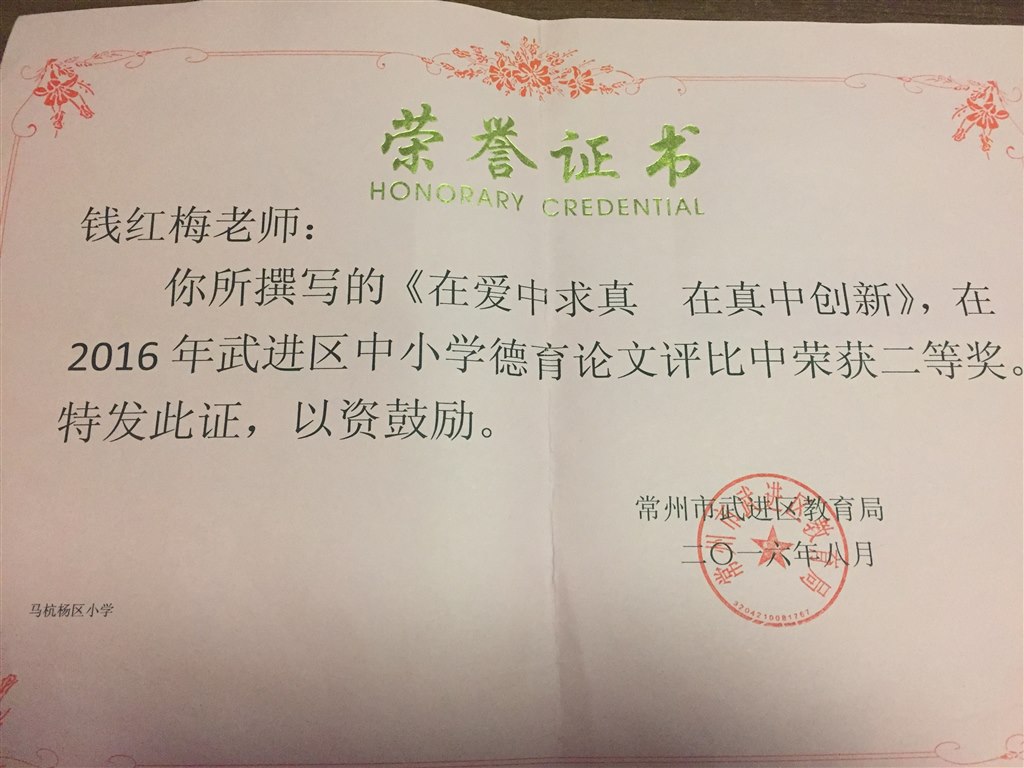 荣誉证书
HONORARY CREDENTIAL
钱红梅老师：
你所撰写的《在爱中求真　在真中创新》，在
2016年武进区中小学德育论文评比中荣获二等奖。
特发此证，以资鼓励。
常州市武进区教育局
二〇一六年八月
常州市武进区教育局
3204210081767
马杭杨区小学